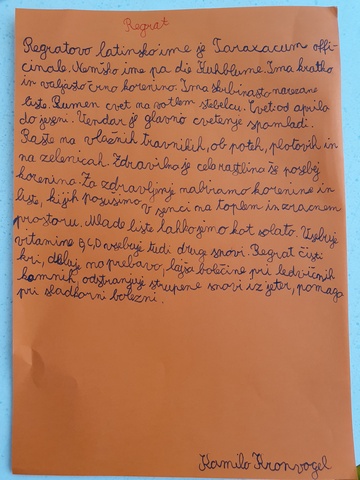 Regrat
Regratovo latinsko ime je Taraxacum offi-
cinale. Nemško ime pa die Kuhblume. Ima kratko
in valjasto črno korenino. Ima škrbinasto narezane
liste. Rumen cvet na votlem stebelcu. Cveti od aprila
do jeseni. Vendar je glavno cvetenje spomladi.
Raste na vlažnih travnikih, ob poteh, plotovih in
na zelenicah. Zdravilna je cela rastlina še posebej
korenina. Za zdravljenj nabiramo korenine in
liste, ki jih posušimo v senci na toplem in zračnem
prostoru. Mlade liste lahko jimo kot solato. Vsebuje
vitamine B, C, D vsebuj tudi druge snovi. Regrat čisti
kri, dělaj na prebavo, lajša bolečine pri ledvičnih
kamnih, odstranjuj strupene snovi iz jeter, pomaga
pri sladkorni bolezni.
Kamilo Kronvogel